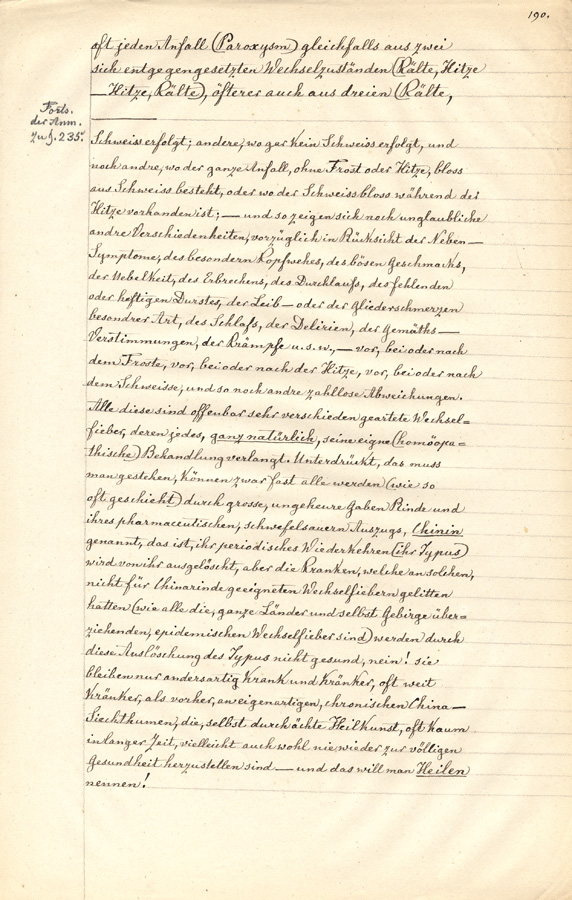 190.
oft jeden Anfall (Paroxysm) gleichfalls aus zwei
sich entgegengesetzten Wechselzuständen (Kälte, Hitze
— Hitze, Kälte), öfterer auch aus dreien (Kälte,
Forts.
der Anm.
zu §. 235.
Schweiss erfolgt; andere, wo gar kein Schweiss erfolgt, und
noch andre, wo der ganze Anfall, ohne Frost oder Hitze, bloss
aus Schweiss besteht, oder wo der Schweiss bloss während der
Hitze vorhanden ist; — und so zeigen sich noch unglaubliche
andre Verschiedenheiten, vorzüglich in Rücksicht der Neben—
Symptome, des besondern Kopfwehes, des bösen Geschmacks,
der Uebelkeit, des Erbrechens, des Durchlaufs, des fehlenden
oder heftigen Durstes, der Leib— oder der Gliederschmerzen
besondrer Art, des Schlafs, der Delirien, der Gemüths—
Verstimmungen, der Krämpfe u. s. w., — vor, bei oder nach
dem Froste, vor, bei oder nach der Hitze, vor, bei oder nach
dem Schweisse, und so noch andre zahllose Abweichungen.
Alle diese sind offenbar sehr verschieden geartete Wechsel=
fieber, deren jedes, ganz natürlich, seine eigne (homöopa=
thische) Behandlung verlangt. Unterdrückt, das muss
man gestehen, können zwar fast alle werden (wie so
oft geschieht) durch grosse, ungeheure Gaben Rinde und
ihres pharmaceutischen, schwefelsauern Auszugs, Chinin
genannt, das ist, ihr periodisches Wiederkehren (ihr Typus)
wird von ihr ausgelöscht, aber die Kranken, welche an solchen,
nicht für Chinarinde geeigneten Wechselfiebern gelitten
hatten (wie alle die, ganze Länder und selbst Gebirge über=
ziehenden, epidemischen Wechselfieber sind) werden durch
diese Auslöschung des Typus nicht gesund, nein! sie
bleiben nur andersartig krank und kränker, oft weit
kränker, als vorher, an eigenartigen, chronischen China—
Siechthumen, die, selbst durch ächte Heilkunst, oft kaum
in langer Zeit, vielleicht auch wohl nie wieder zur völligen
Gesundheit herzustellen sind — und das will man Heilen
nennen!